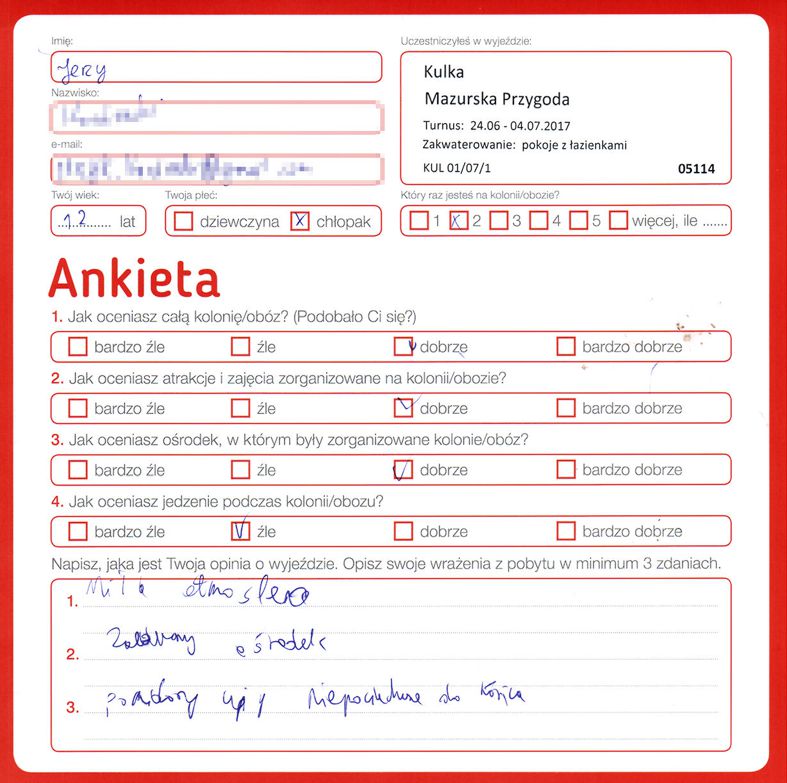 Imię:
Jerzy
Nazwisko:
e-mail:
Twój wiek:
12 lat
Twoja płeć:
dziewczyna x chłopak
Uczestniczyłeś w wyjeździe:
Kulka
Mazurska Przygoda
Turnus: 24.06 - 04.07.2017
Zakwaterowanie: pokoje z łazienkami
KUL 01/07/1 05114
Który raz jesteś na kolonii/obozie?
1 x 2 3 4 5 więcej, ile .......
Ankieta
1. Jak oceniasz całą kolonię/obóz? (Podobało Ci się?)
bardzo źle źle dobrze bardzo dobrze
2. Jak oceniasz atrakcje i zajęcia zorganizowane na kolonii/obozie?
bardzo źle źle dobrze bardzo dobrze
3. Jak oceniasz ośrodek, w którym były zorganizowane kolonie/obóz?
bardzo źle źle dobrze bardzo dobrze
4. Jak oceniasz jedzenie podczas kolonii/obozu?
bardzo źle źle dobrze bardzo dobrze
Napisz, jaka jest Twoja opinia o wyjeździe. Opisz swoje wrażenia z pobytu w minimum 3 zdaniach.
1. Miła atmosfera
2. ośrodek
3. do końca